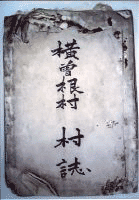 横曽根村 村誌